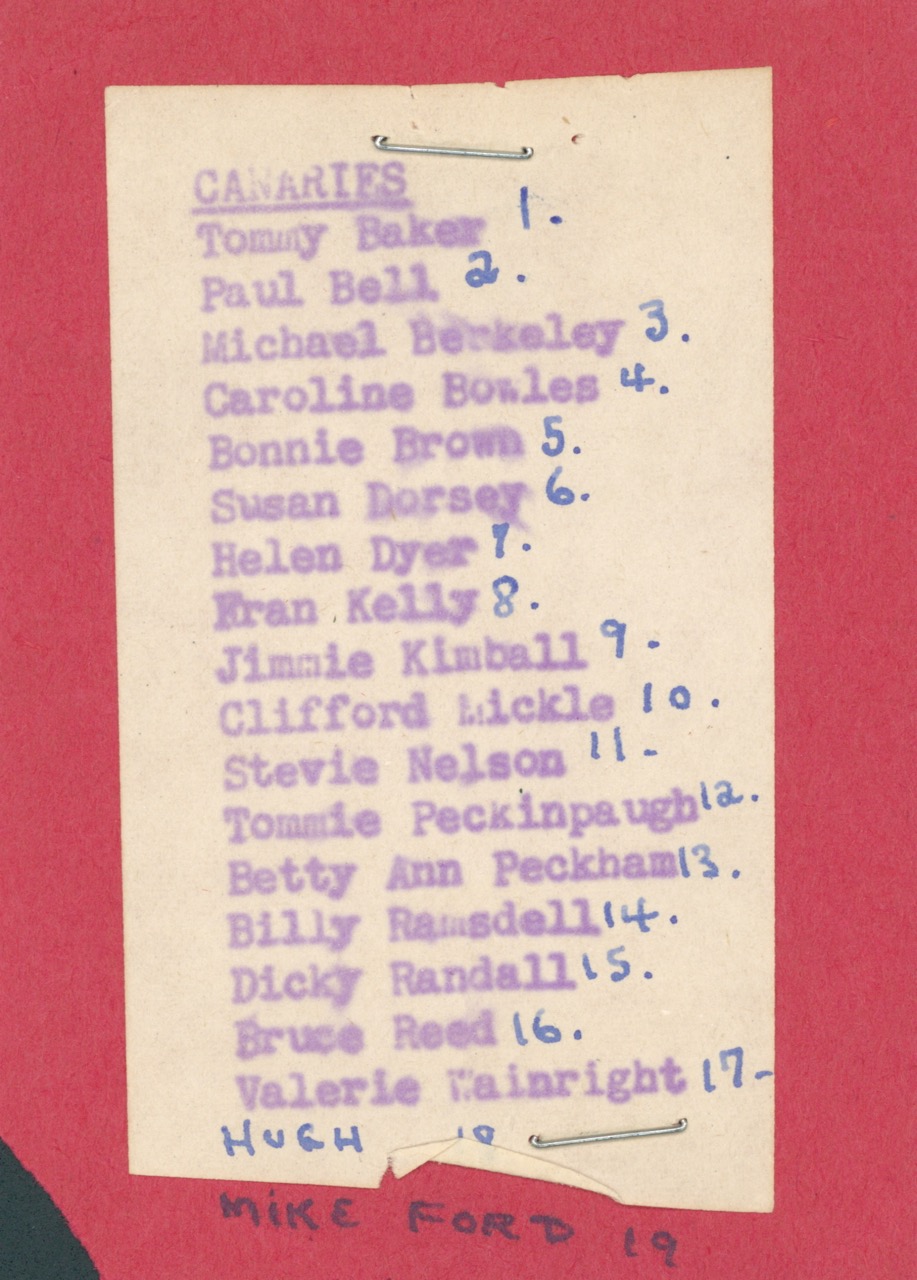 CANARIES
Tommy Baker 1.
Paul Bell 2.
Michael Berkeley 3.
Caroline Bowles 4.
Bonnie Brown 5.
Susan Dorsey 6.
Helen Dyer 7.
Fran Kelly 8.
Jimmie Kimball 9.
Clifford Mickle 10.
Stevie Nelson 11-
Tommie Peckinpaugh 12.
Betty Ann Peckham 13.
Billy Ramsdell 14.
Dicky Randall 15.
Bruce Reed 16.
Valerie Wainright 17-
HUGH 18
MIKE FORD 19